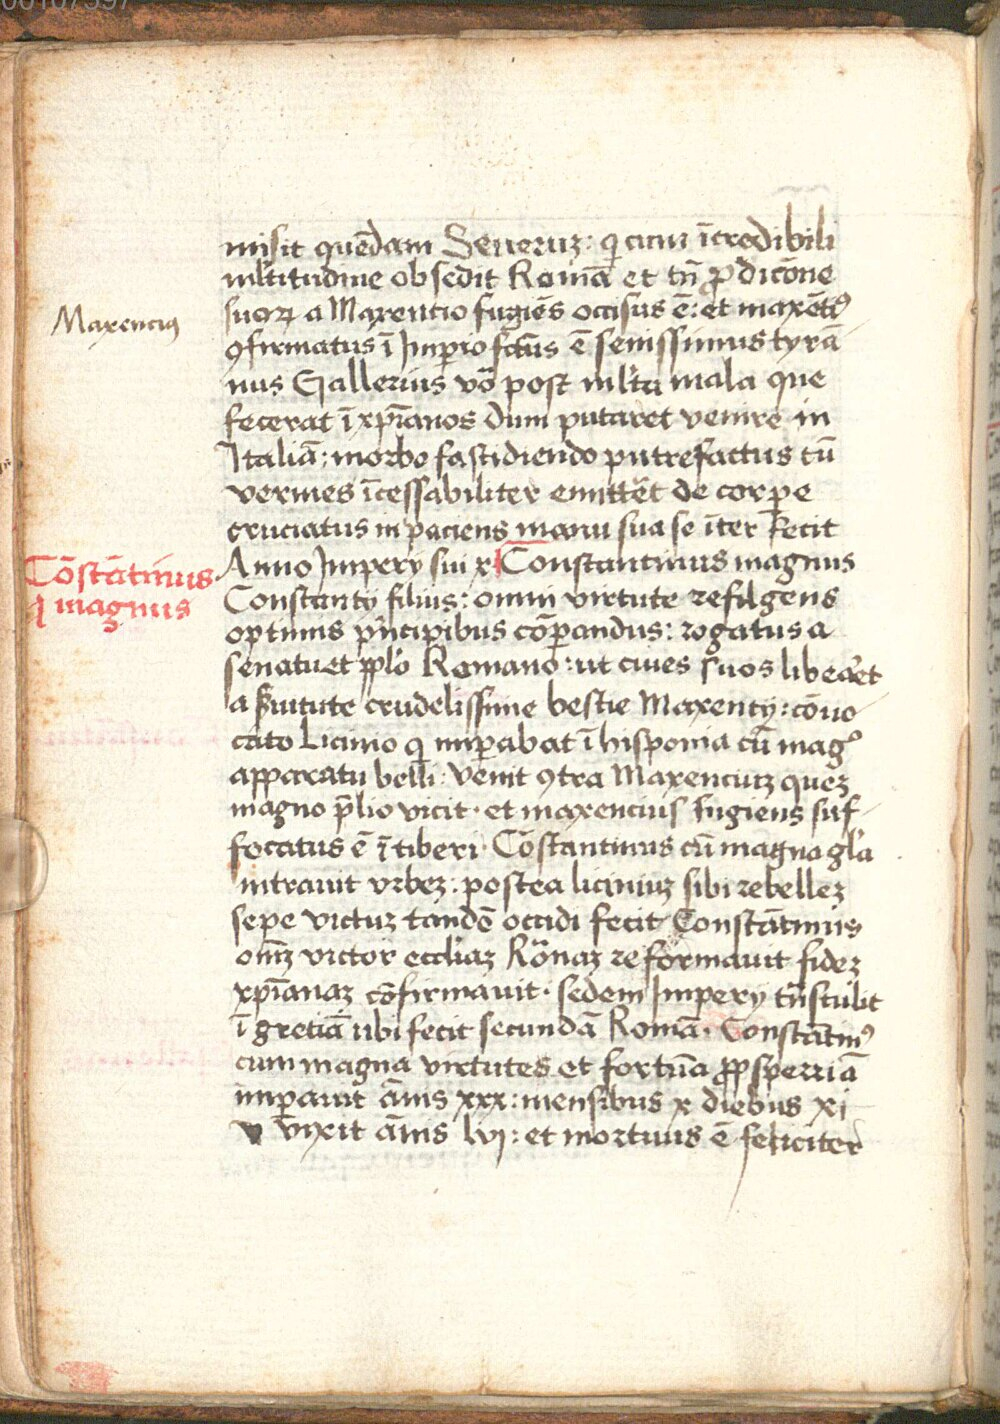 00107397
misit quēdam Seueruꝫ: qͥ cum īcredibili
ml̄titudine obsedit Romā et tn̄ ꝓdicōne
Maxencius
suoꝝ a Maxentio fugiēs occisus ē: et maxētiꝰ
ꝯfirmatus ī Imperio fc̄tus ē seuissimus tyrā
nus Gallerius vō post ml̄ta mala que
fecerat ī xp̄ianos dum putaret venire in
Italiā: morbo fastidiendo putrefactus cū
vermes īcessabiliter emittēt de corpe
cruciatus inpaciens manu sua se īter fecit
Anno Impery sui x Constantinus magnus
Cōstātinus
magnus
Constanty filius: omni virtute refulgens
optimis pͥncipibus cōꝑandus: rogatus a
senatu et pp̄lo Romano: ut ciues suos libeāet
a ẜuitute crudelissime bestie Maxenty: cōuo
cato Licinio qͥ imꝑabat ī hispania cū magͦ
apparatu belli: venit ꝯtra Maxenciuꝫ queꝫ
magno p̄lio vicit · et maxencius fugiens suf
focatus ē ī tiberi · Cōstantinus cū magna gl̄a
intrauit vrbeꝫ: postea liciniuꝫ sibi rebelleꝫ
sepe victuꝫ tandē occidi fecit Constātinus
om̄ꝫ victor eccl̄iaꝫ Rōnaꝫ reformauit fideꝫ
xp̄ianaꝫ cōfirmauit · sedem Impery tn̄stulit
ī gretiā ubi fecit secundā Romā · Constātinꝰ
cum magna virtutes et fortūa ꝓsperriā
imꝑauit ānis xxx: mensibus x diebus xi
v vixit ānis lvj: et mortuus ē feliciter